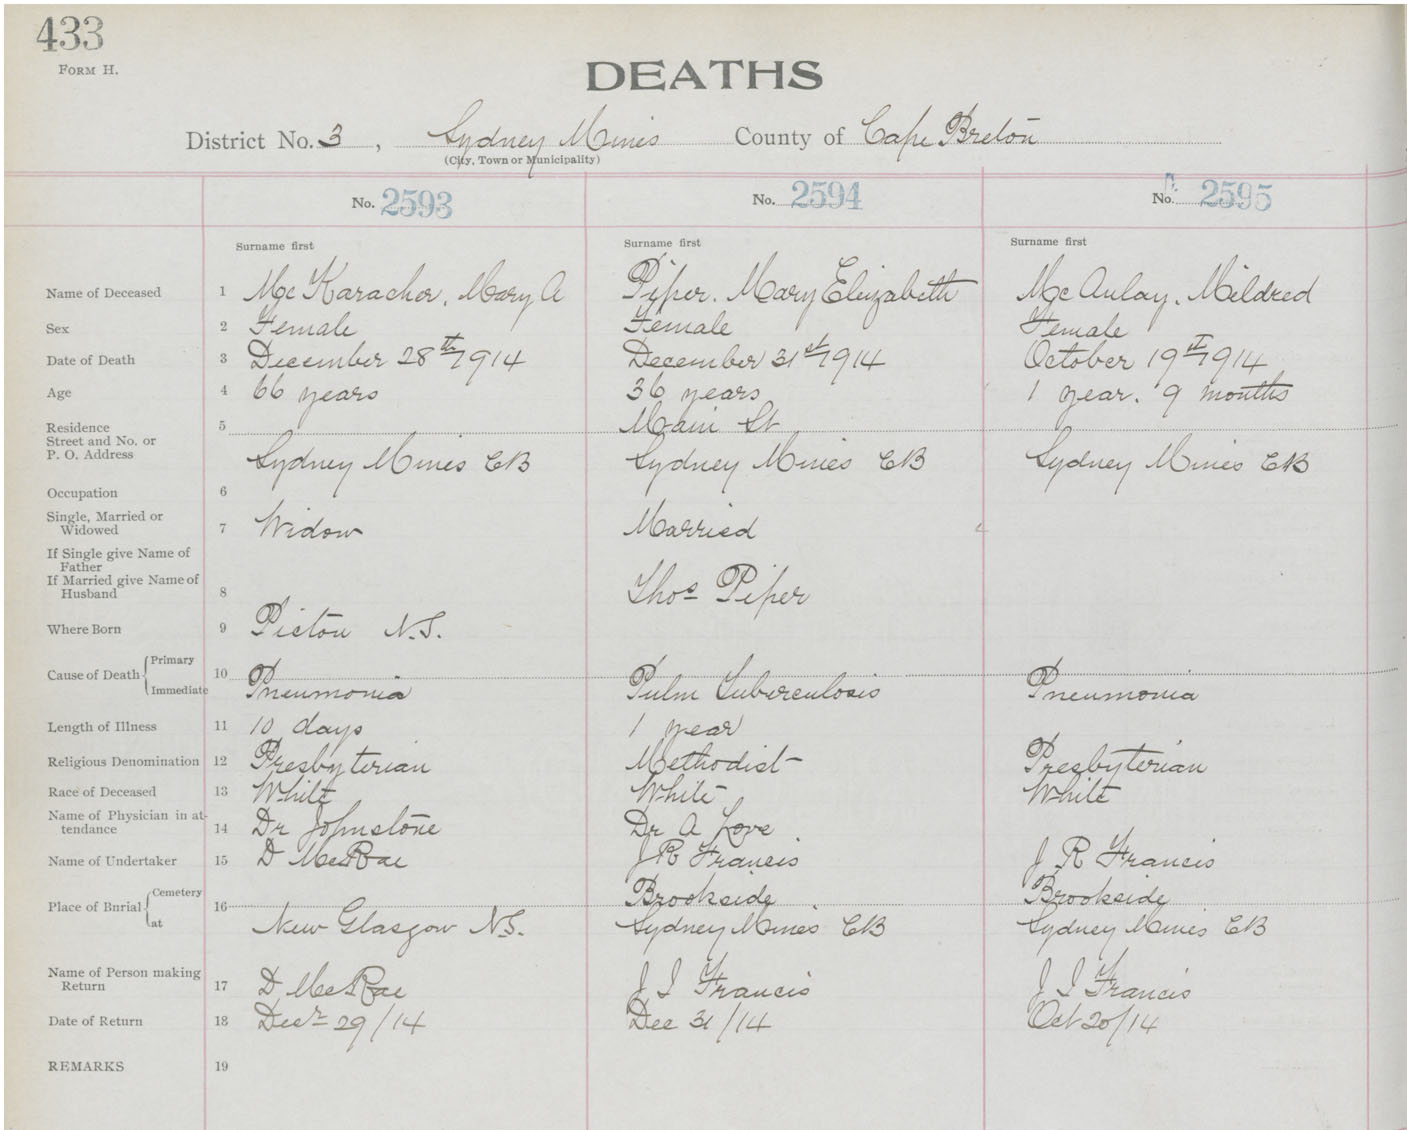 433
FORM H.
DEATHS
District No. 3, Sydney Mines County of Cape Breton
(City, Town or Municipality)
No. 2593 No. 2594 No. 2595
Surname first Surname first Surname first
Name of Deceased 1 Mc Karacher, Mary A Piper. Mary Elizabeth Mc Aulay. Mildred
Sex 2 Female Female Female
Date of Death 3 December 28th 1914 December 31st 1914 October 19st 1914
Age 4 66 years 36 years 1 year. 9 months
Residence 5 Main St
Street and No. or
P. O. Address Sydney Mines CB Sydney Mines CB Sydney Mines CB
Occupation 6
Single, Married or
Widowed 7 Widow Married
If Single give Name of
Father
If Married give Name of
Husband 8 Thos Piper
Where Born 9 Pictou N.S.
Cause of Death Primary 10
Immediate Pneumonia Pulm Tuberculosis Pneumonia
Length of Illness 11 10 days 1 year
Religious Denomination 12 Presbyterian Methodist Presbyterian
Race of Deceased 13 White White White
Name of Physician in at-
tendance 14 Dr Johnstone Dr A Love
Name of Undertaker 15 D McRae J R Francis J. R Francis
Place of Burial Cemetery 16 Brookside Brookside
at New Glasgow N.S. Sydney Mines CB Sydney Mines CB
Name of Person making
Return 17 D McRae J I Francis J I Francis
Date of Return 18 Decr 29/14 Dec 31/14 Oct 20/14
REMARKS 19